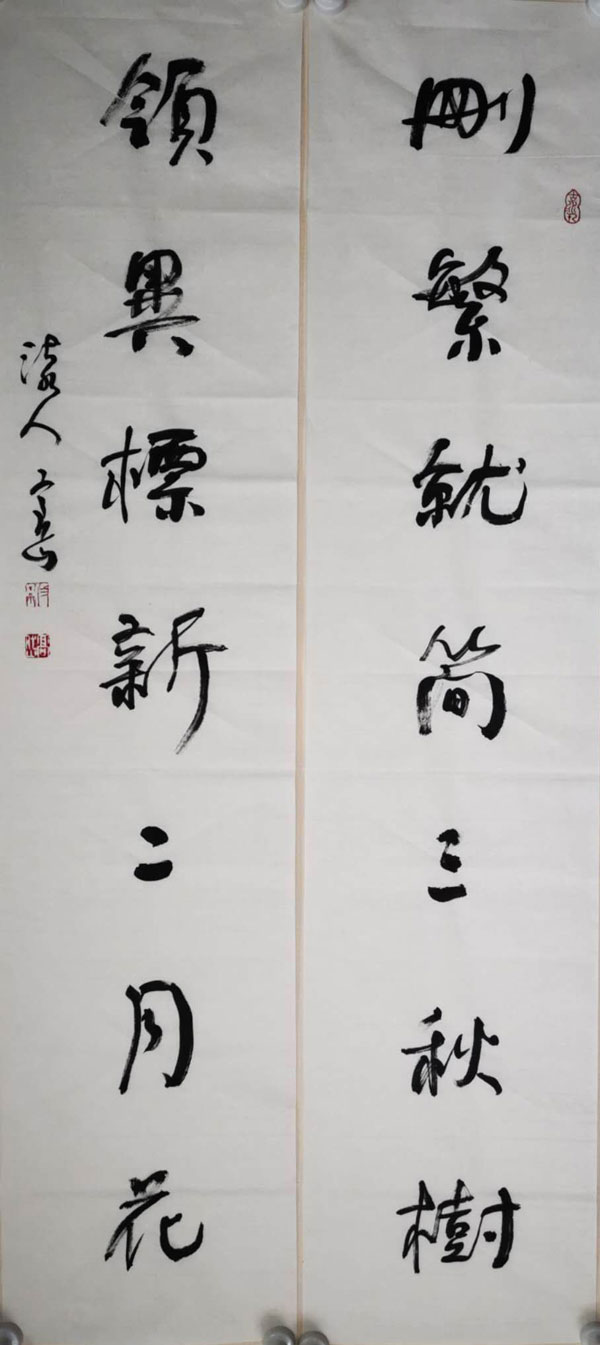 刪繁就简三秋樹
領異標新二月花